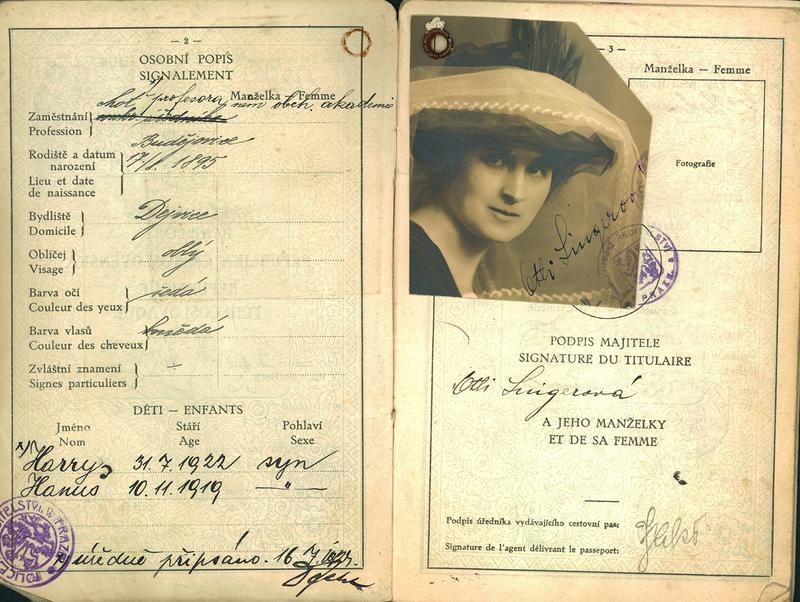 — 2 —
OSOBNÍ POPIS
SIGNALEMENT
Manželka — Femme
choť profesora něm. obch. akademie
Zaměstnání
Profession
Budějovice
Rodiště a datum narození
1895
Lieu et date de naissance
Bydliště
Domicile
Dejvice
Obličej
Visage
oblý
Barva očí
Couleur des yeux
šedá
Barva vlasů
Couleur des cheveux
hnědá
Zvláštní znamení
Signes particuliers
—
DĚTI — ENFANTS
Jméno Stáří Pohlaví
Nom Age Sexe
x/ Harry 31.7.1922 syn
Hanuš 10.11.1919 — " —
x/ úředně připsáno. 16
— 3 —
Manželka — Femme
Fotografie
Otli Singerová
PODPIS MAJITELE
SIGNATURE DU TITULAIRE
Otli Singerová
A JEHO MANŽELKY
ET DE SA FEMME
Podpis úředníka vydávajícího cestovní pas:
Signature de l'agent délivrant le passeport: